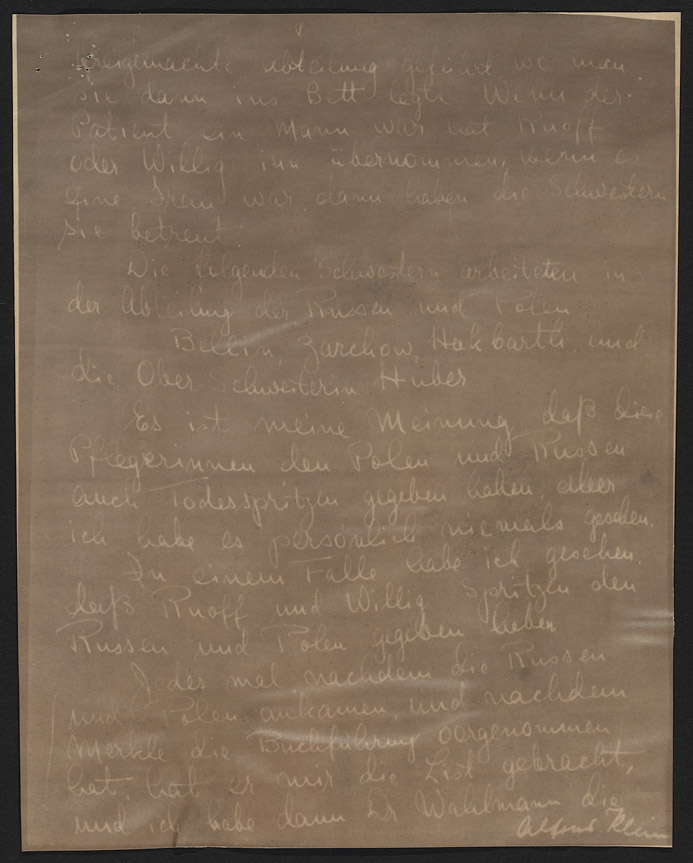 Abteilung geführt wo man
sie dann ins Bett legte Wenn der
Patient ein Mann war hat Ruoff
oder Willig ihn übernommen, wenn es
eine Frau war dann haben die Schwestern
sie betreut.
Die folgenden Schwestern arbeiteten in
der Abteilung der Russen und Polen
Bellin, Zarchow, Hakbarth und
die Ober Schwesterin Huber
Es ist meine Meinung daß diese
Pflegerinnen den Polen und Russen
auch Todesspritzen gegeben haben, aber
ich habe es persönlich niemals gesehen.
In einem Falle habe ich gesehen,
daß Ruoff und Willig Spritzen den
Russen und Polen gegeben haben
Jedes mal nachdem die Russen
und Polen ankamen, und nachdem
Merkle die Buchführung vorgenommen
hat, hat er mir die List gebracht,
und ich habe dann Dr Wahlmann die
Alfons Klein